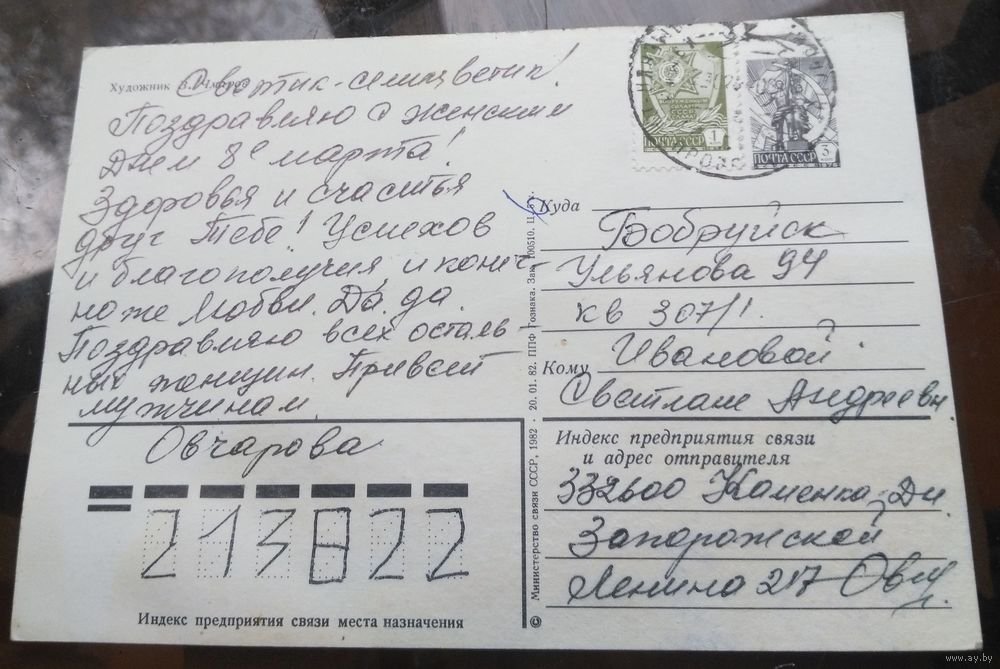 Художник
Светик-семицветик!
Поздравляю с женским
Днем 8е марта!
Здоровья и счастья
друг Тебе! Успехов
и благополучия, и конеч-
но же любви. Да, да.
Поздравляю всех осталь-
ных женщин. Привет
мужчинам.
Овчарова
213822
Индекс предприятия связи места назначения
Министерство связи СССР, 1982 · 20. 01. 82. ППФ Гознака. Зак. 100510. Ц.
©
1
ПОЧТА СССР
3
ПОЧТА СССР
Куда
Бобруйск
Ульянова 94
кв 307/1.
Кому
Ивановой
Светлане Андреевн.
Индекс предприятия связи
и адрес отправителя
332600 Каменка-Дн
Запорожской
Ленина 217
www.ay.by